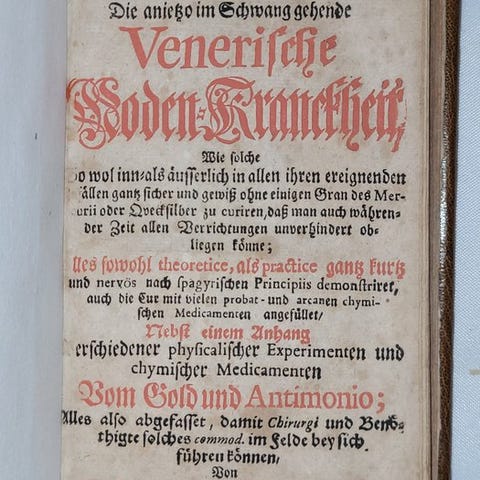 Die anietzo im Schwang gehende
Venerische
Moden-Kranckheit,
Wie solche
So wol inn- als äusserlich in allen ihren ereignenden
Fällen gantz sicher und gewiß ohne einigen Gran des Mer-
curii oder Qvecksilber zu curiren, daß man auch währen-
der Zeit allen Verrichtungen unverhindert ob-
liegen könne;
Alles sowohl theoretice, als practice gantz kurtz
und nervös nach spagyrischen Principiis demonstriret,
auch die Cur mit vielen probat- und arcanen chymi-
schen Medicamenten angefüllet/
Nebst einem Anhang
verschiedener physicalischer Experimenten und
chymischer Medicamenten
Vom Gold und Antimonio;
Alles also abgefasset, damit Chirurgi und Benö-
thigte solches commod. im Felde bey sich
führen können,
Von